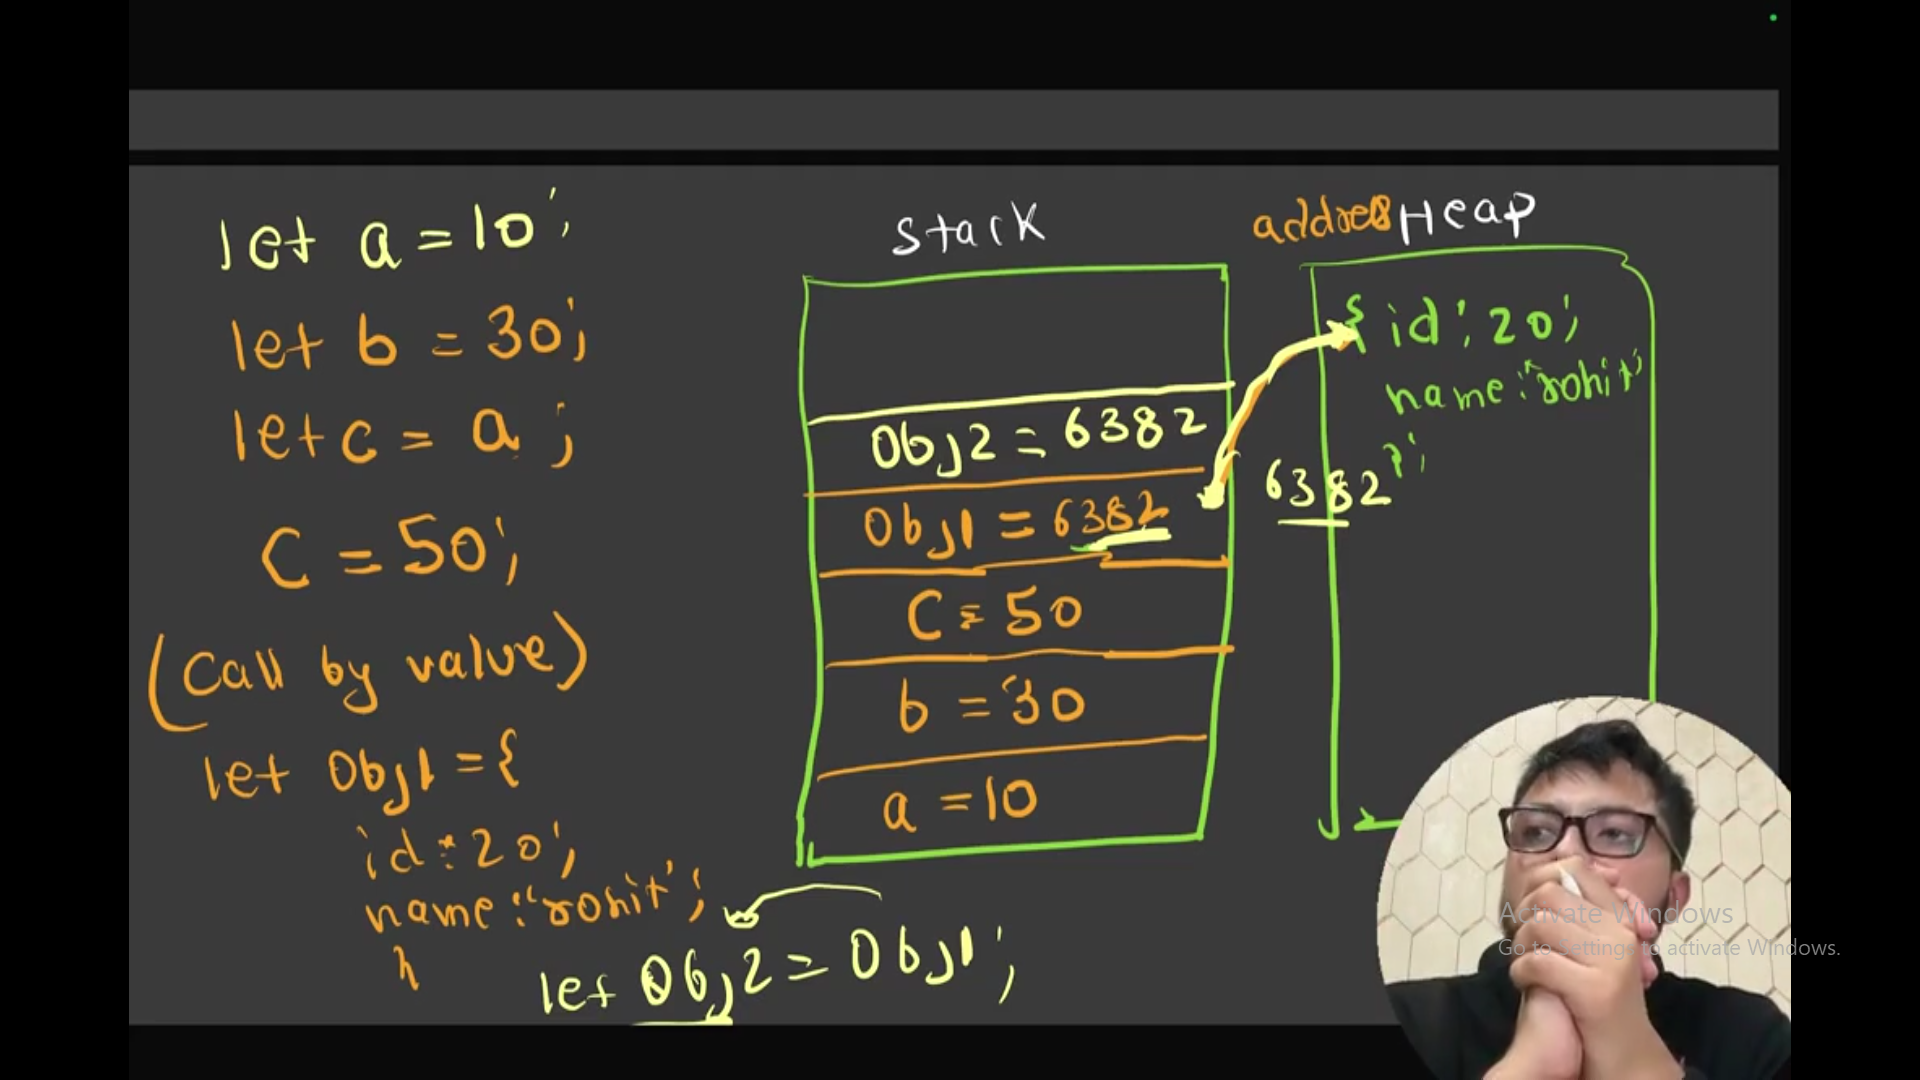 let a = 10;
let b = 30;
let c = a;
C = 50;
(Call by value)
let Obj1 = {
id: 20;
name: "rohit";
let Obj2 = Obj1;
Stack
Obj2 = 6382
Obj1 = 6382
C = 50
b = 30
a = 10
address Heap
{ id: 20;
name: "rohit"
6382 };
Activate Windows
Go to Settings to activate Windows.